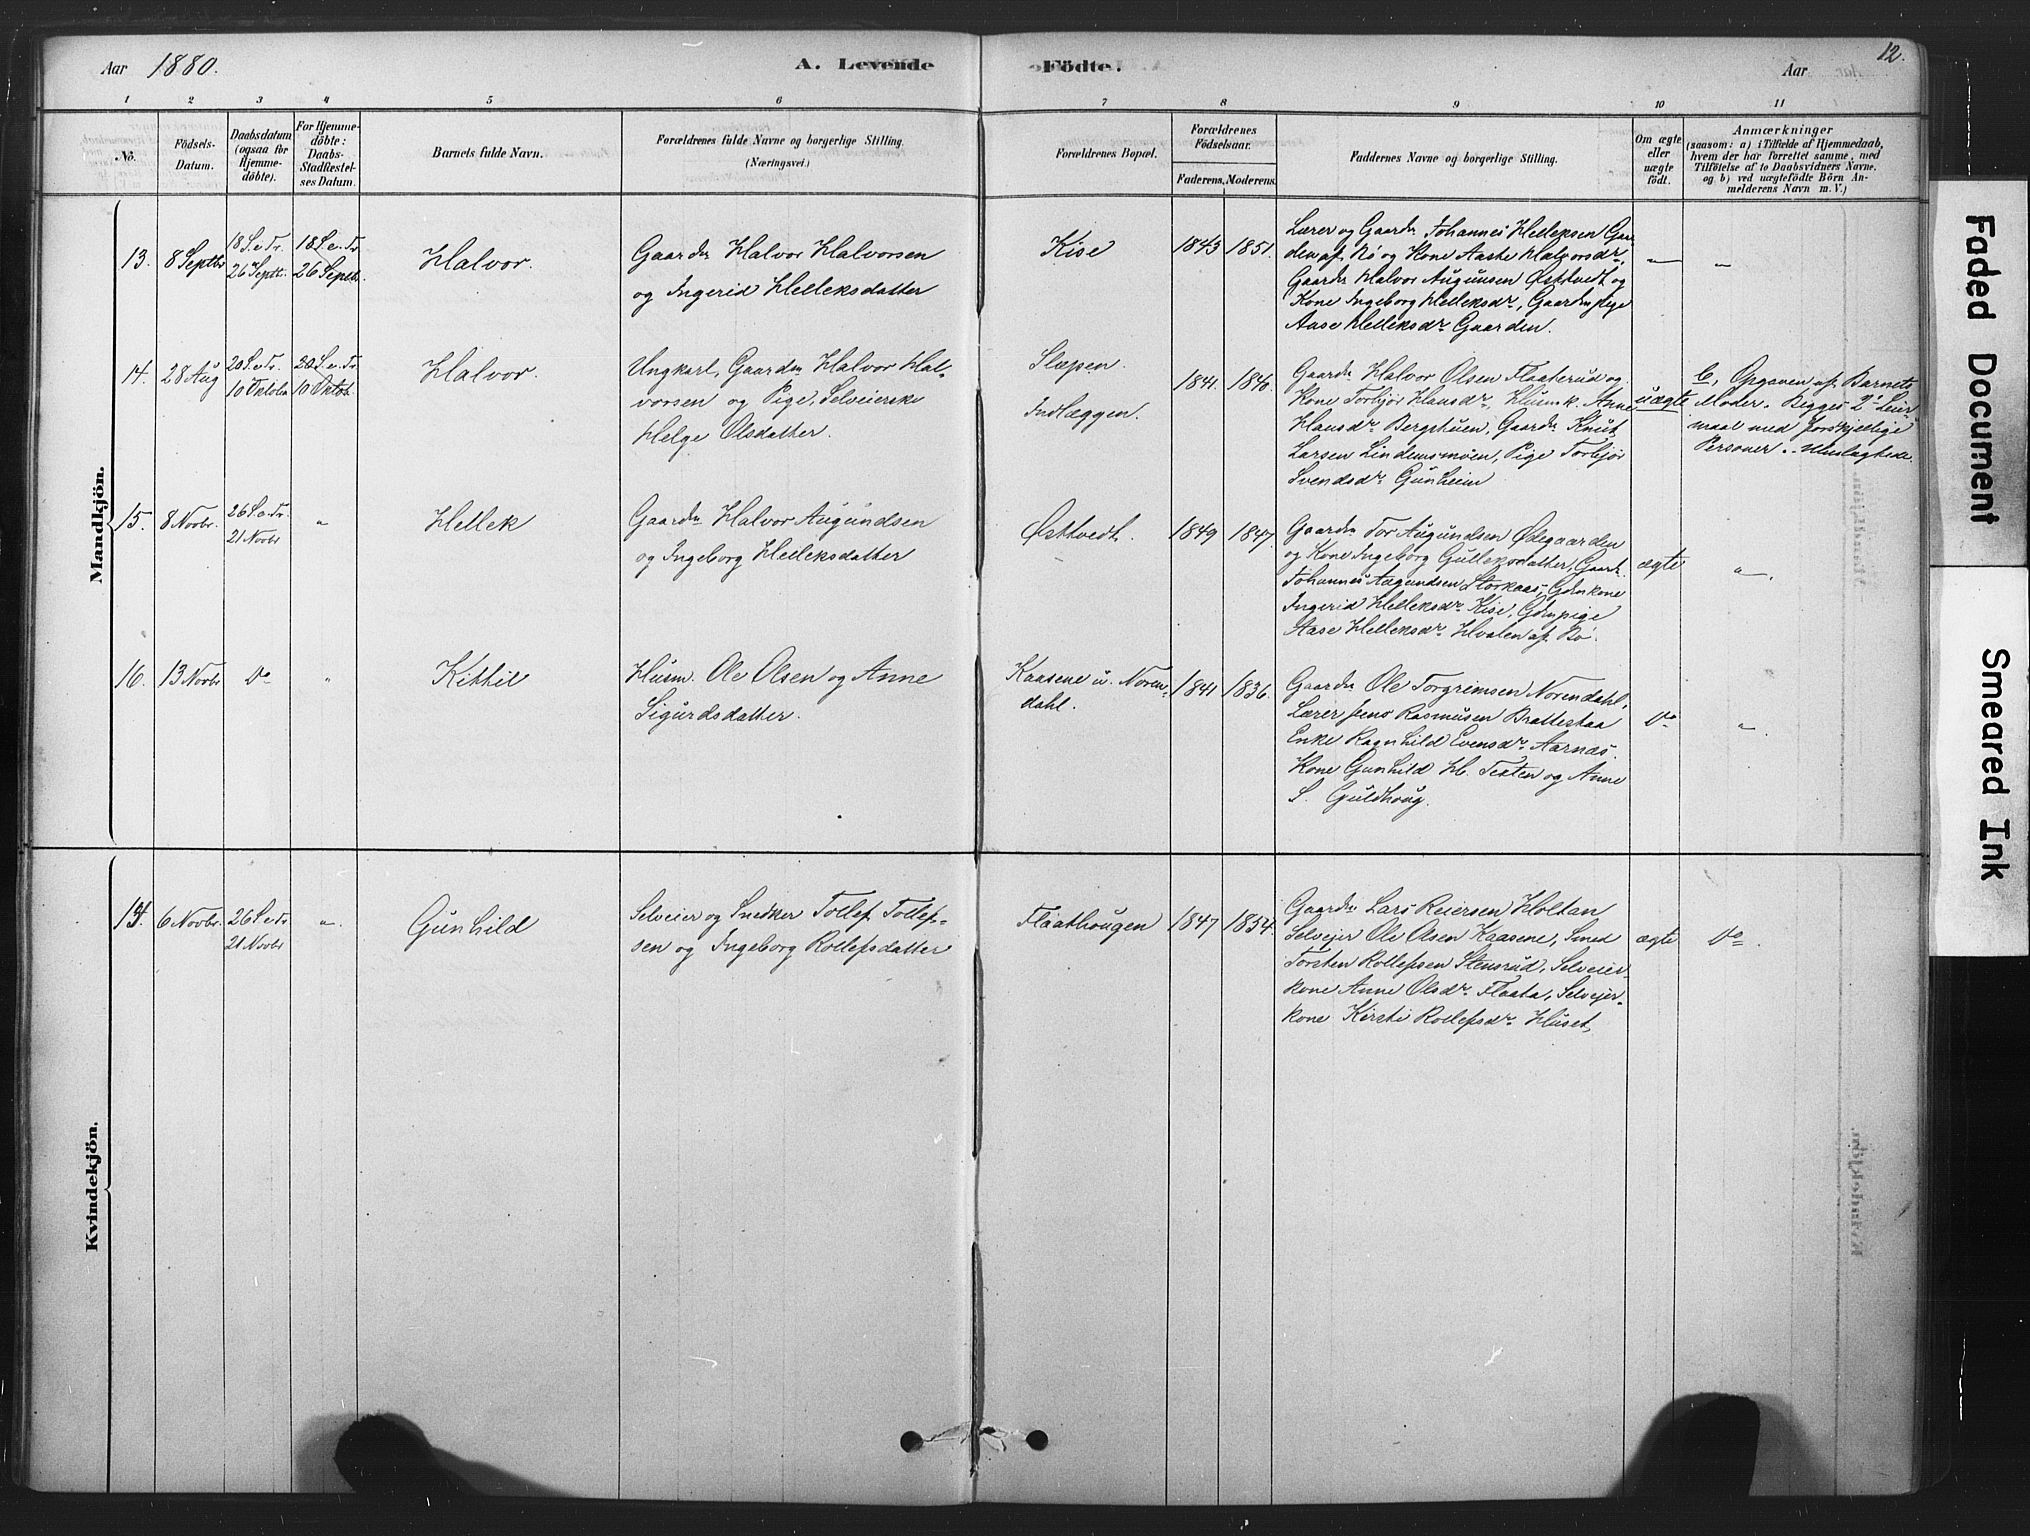 Aar 1880.
A. Levende Födte.
Aar
12.
1 2 3 4 5 6 7 8 9 10 11
No.
Födsels-Datum.
Daabsdatum (ogsaa for Hjemme-döbte).
For Hjemme-döbte: Daabs-Stadfæstel-ses Datum.
Barnets fulde Navn.
Forældrenes fulde Navne og borgerlige Stilling.
(Næringsvei.)
Forældrenes Bopæl.
Forældrenes Födselsaar.
Faderens. Moderens.
Faddernes Navne og borgerlige Stilling.
Om ægte eller uægte födt.
Anmærkninger
(saasom: a) i Tilfælde af Hjemmedaab, hvem der har forrettet samme, med Tilföielse af to Daabsvidners Navne. og b) ved uægtefödte Börn An-melderens Navn m. V.)
Mandkjön.
13. 8 Septbr. 18 S. e. Tr. 26 Septbr. 18 S. e. Tr. 26 Septbr.
Halvor.
Gaardm Halvor Halvorsen
og Ingerid Helleksdatter
Kise
1843 1851.
Lærer og Gaardm Johannes Helleksen Gaar
den af Bø og Kone Aaste Halvorsdr,
Gaardm Halvor Augunsen Østtvedt og
Kone Ingeborg Helleksdr, Gaardmpige
Aase Helleksdr Gaarden.
" "
14. 28 Aug 20 S. e. Tr. 10 Oktober 20 S. e. Tr. 10 Oktob.
Halvor.
Ungkarl, Gaardm Halvor Hal-
vorsen og Pige, Selveierske
Helge Olsdatter.
Slæpen.
Indlæggen.
1841. 1846.
Gaardm Halvor Olsen Flaaterud og
Kone Torbjør Hansdr, Huusmk. Anne
Hansdr Bergstuen, Gaardm Knut
Larsen Lindemsmoen, Pige Torbjør
Svendsdr Gunheim
uægte
b, Opgaven af Barnets
Moder. Begges 2' Leier
maal med forskjellige
Personer.
15. 8 Novbr. 26 S. e. Tr. 21 Novbr "
Hellek
Gaardm Halvor Augundsen
og Ingeborg Helleksdatter
Østtvedt.
1849 1847.
Gaardm Tor Augundsen Ødegaarden
og Kone Ingeborg Gulleksdatter, Gaardm
Johannes Augundsen Storkaas, Gdmkone
Ingerid Helleksdr Kise, Gdmpige
Aase Helleksdr Hvalen af Bø.
ægte "
16. 13 Novbr Do "
Kittil
Husm. Ole Olsen og Anne
Sigurdsdatter.
Kaasene u. Noren-
dahl.
1841 1836.
Gaardm Ole Torgrimsen Norendahl,
Lærer Jens Rasmusen Brattestaa
Enke Ragnhild Evensdr Aarnæs
Kone Gunhild H. Texten og Anne
S. Guldhoug.
Do "
Kvindekjön.
14. 6 Novbr. 26 S. e. Tr 21 Novbr "
Gunhild
Selveier og Snedker Tollef Tollef-
sen og Ingeborg Rollefsdatter
Flaathougen
1847 1854.
Gaardm Lars Reiersen Holtan,
Selvejer Ole Olsen Kaasene, Smed
Torsten Rollefsen Stensrud, Selveier-
kone Anne Olsdr Flaata, Selvejer-
kone Kirsti Rollefsdr Huset,
ægte Do.
Faded Document
Smeared Ink